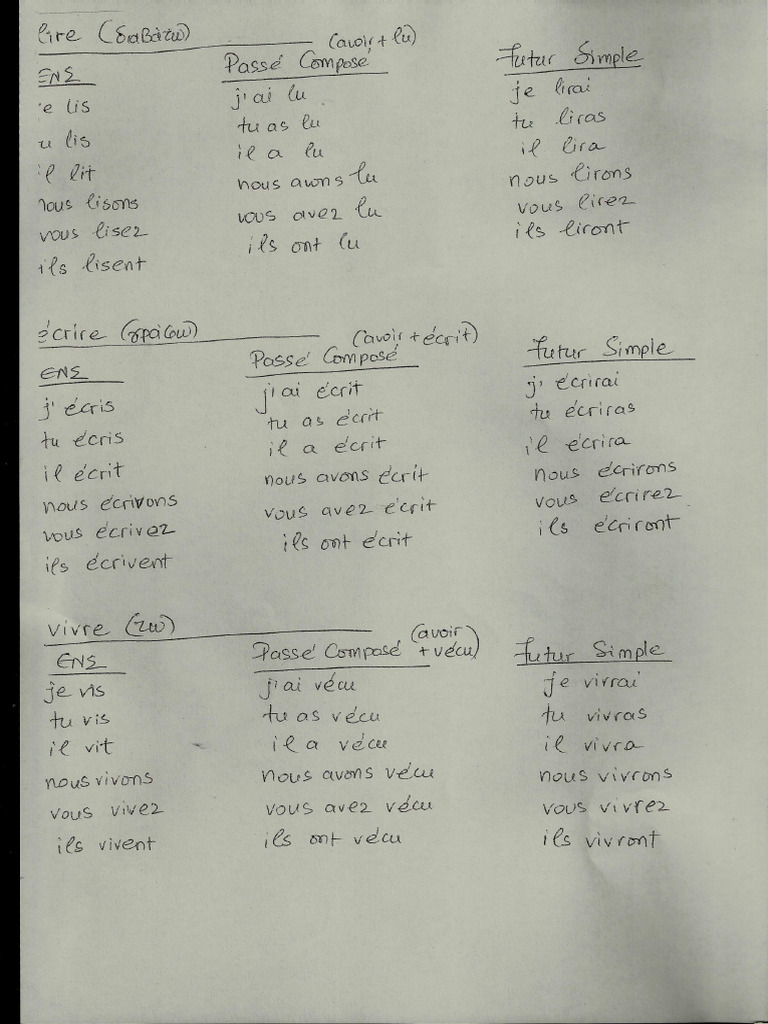 lire (διαβάζω)
(avoir + lu)
ΕΝΣ
Passé Composé
Futur Simple
e lis
j'ai lu
je lirai
u lis
tu as lu
tu liras
il lit
il a lu
il lira
nous lisons
nous avons lu
nous lirons
vous lisez
vous avez lu
vous lirez
ils lisent
ils ont lu
ils liront
écrire (γράφω)
(avoir + écrit)
ΕΝΣ
Passé Composé
Futur Simple
j' écris
j'ai écrit
j' écrirai
tu écris
tu as écrit
tu écriras
il écrit
il a écrit
il écrira
nous écrivons
nous avons écrit
nous écrirons
vous écrivez
vous avez écrit
vous écrirez
ils écrivent
ils ont écrit
ils écriront
vivre (ζω)
(avoir + vécu)
ΕΝΣ
Passé Composé
Futur Simple
je vis
j'ai vécu
je vivrai
tu vis
tu as vécu
tu vivras
il vit
il a vécu
il vivra
nous vivons
nous avons vécu
nous vivrons
vous vivez
vous avez vécu
vous vivrez
ils vivent
ils ont vécu
ils vivront